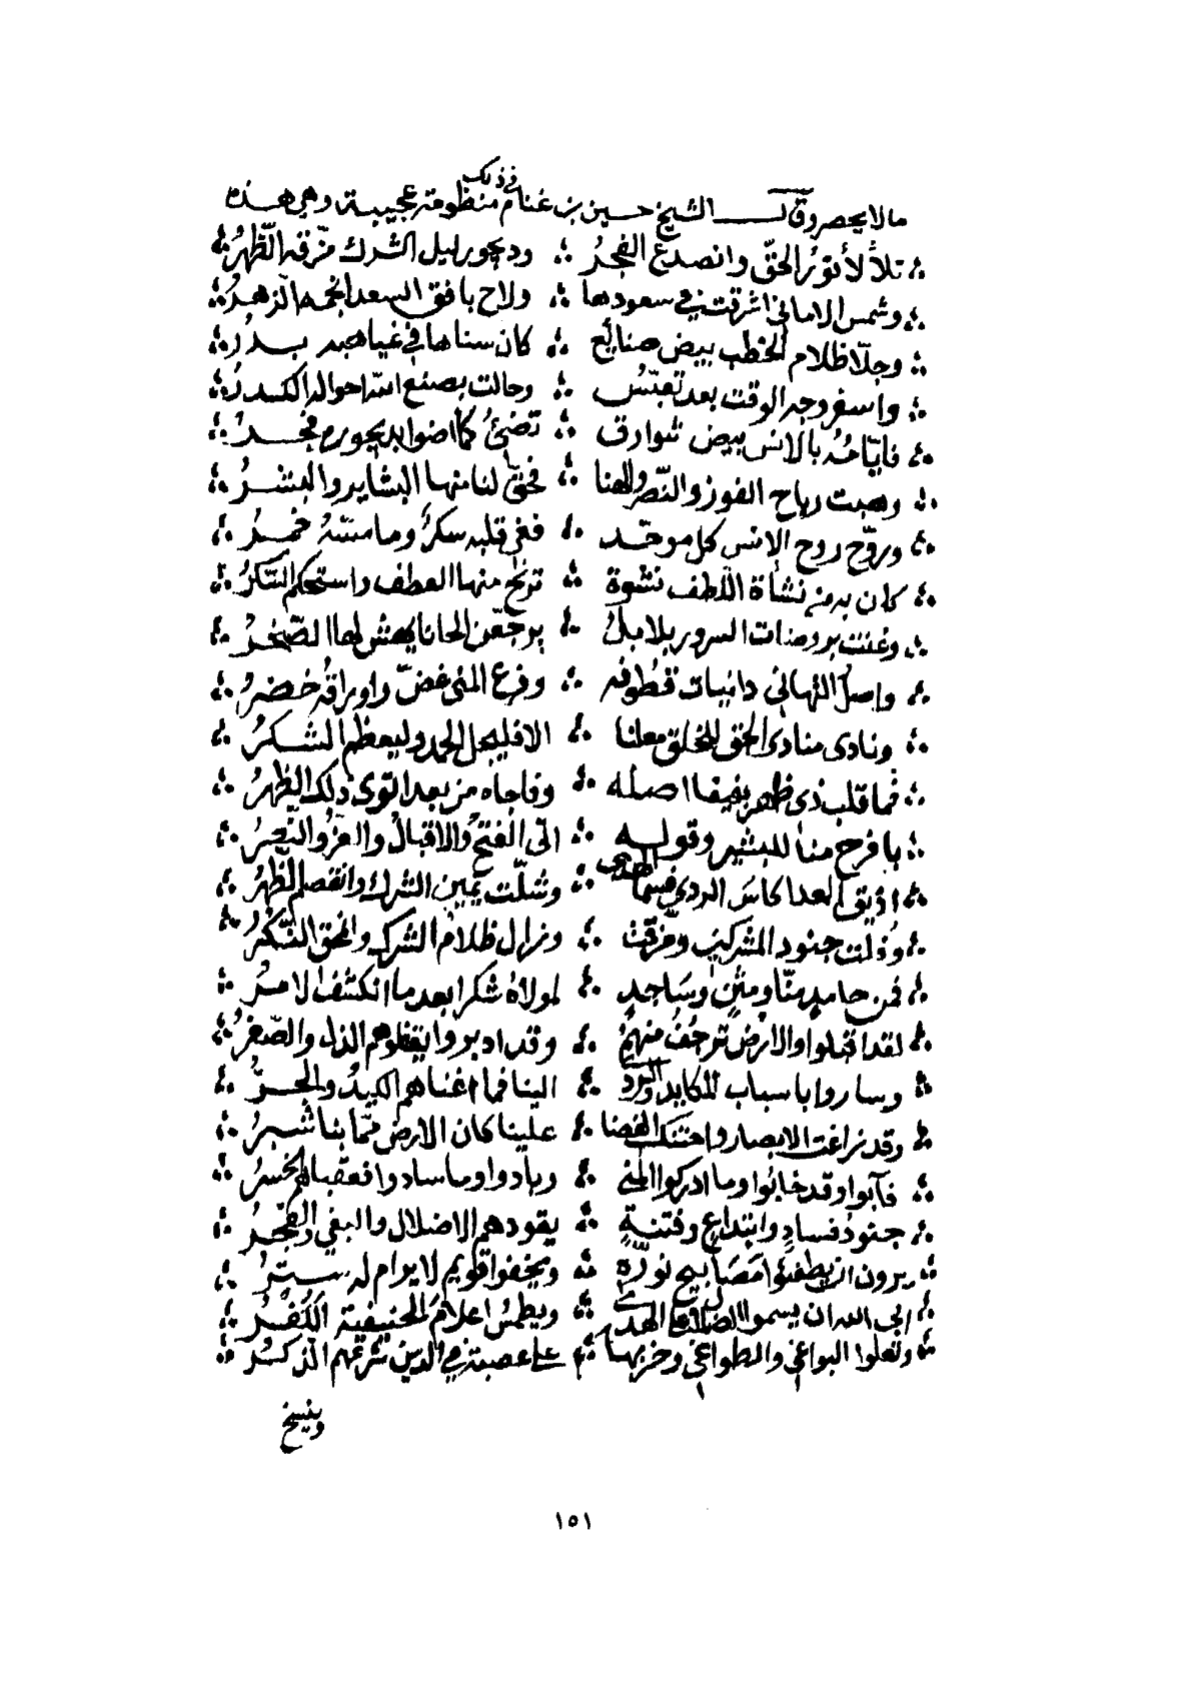 في ذلك
مالا يحصر وقال الشيخ حسين بن غنام منظومة عجيبة وهي هذه
تلألأ نورُ الحقّ وانصدع الفجرُ ∴ وديجور ليل الشرك مزّقه الظّهرُ
وشمس الاماني اشرقت في سعودها ∴ ولاح بافق السعد انجمها الزهرُ
وجلّا ظلام الخطب بيض صنائع ∴ كان سناها في غياهبه بدرُ
واسفر وجه الوقت بعد تعبّسُ ∴ وحالت بصنع الله احواله الكدرُ
فايّامُهُ بالانس بيض شوارق ∴ تضئُ كما اضوا بديجوره فجرُ
وهبت رياح الفوز والنّصر والهنا ∴ فحقّ لنا منها البشاير والبشرُ
وروّح روح الانس كل موحّد ∴ ففي قلبه سكرٌ وما مسّهُ خمرُ
كان به من نشأة اللّطف نشوة ∴ ترنح منها العطف واستحكم السّكرُ
وغنت بروضات السرور بلابلُ ∴ يرجّعن الحانا يهش لها الصّخرُ
واصل التهاني دانيات قطوفه ∴ وفرع المنى غضّ واوراقُه خضرُ
ونادى منادى الحق للخلق معلنا ∴ الا فليجل الحمد وليعظم الشكرُ
فما قلب ذى ظهر بفيفا اصله ∴ وفاجاه من بعد التوى ذلك الظهرُ
با فرح منا للبشير وقوله ∴ اتى الفتحُ والاقبالُ والعزُّ والنّصرُ
اذيق العدا كاسَ الردى فيهما الهدى ∴ وشلّت يمين الشرك وانقصم الظّهرُ
وذلّت جنود المشركين ومزّقت ∴ وزال ظلام الشرك وانمحق النّكرُ
فمن حامدٍ منّا ومثنٍ وساجدٍ ∴ لمولاهُ شكرا بعد ما انكشف الامرُ
لقد اقبلوا والارض ترجف منهمُ ∴ وقد ادبروا يقفوهم الذل والصّغرُ
وساروا باسباب المكايد والرّد ∴ الينا فما اغناهم الكيدُ والجرُّ
وقد زاغت الابصار واحتنك الفضا ∴ علينا كان الارض ممّا بنا شبرُ
فآبوا وقد خابُوا وما ادركوا المنى ∴ وبادوا وما سادوا فعقباهم الخسرُ
جنودُ فسادٍ وابتداعٍ وفتنةٍ ∴ يقودهم الاضلال والبغي والفجرُ
يرون ان يطفئوا مَصَابيح نورهِ ∴ ويخفوا قويم لا يرام له سترُ
ابى الله ان يسموا الضلال على الهدى ∴ ويطمسُ اعلامَ الحنيفية الكفرُ
وتعلوا البواغي والطواغي وحزبها ∴ على عصبة في الدين شرعهم الذكرُ
وينسخ
١٥١